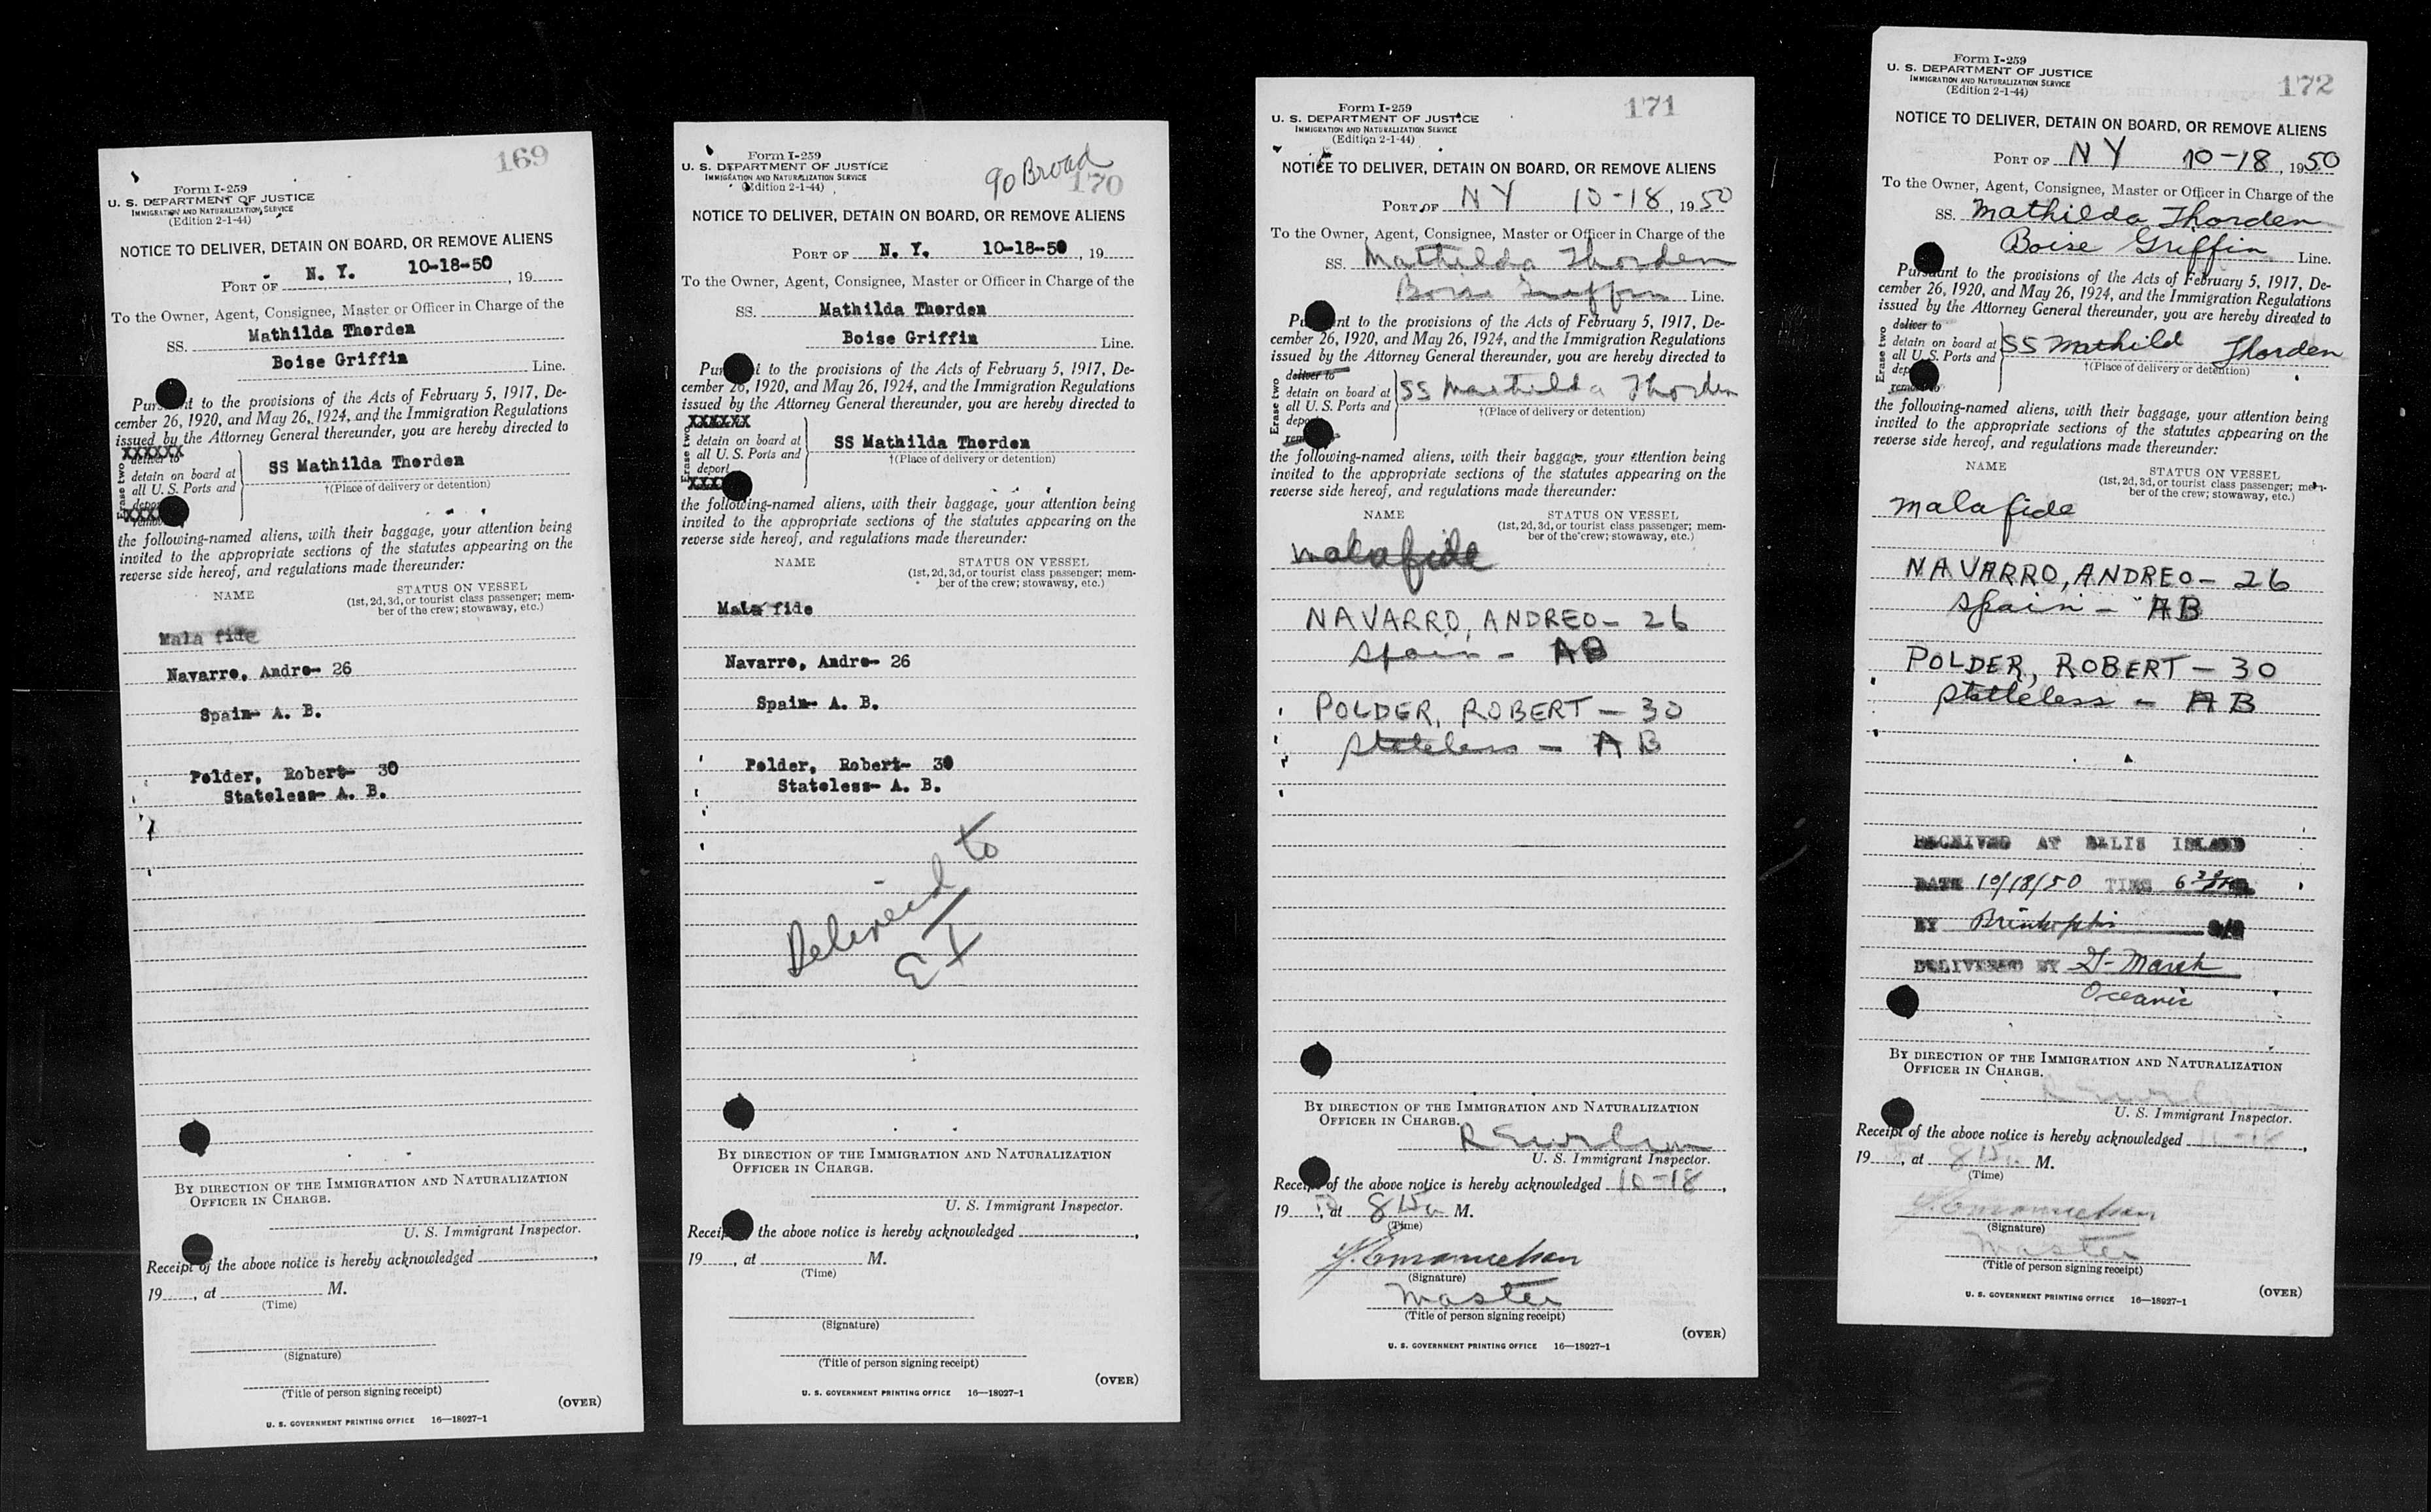 169
Form I-259
U. S. DEPARTMENT OF JUSTICE
IMMIGRATION AND NATURALIZATION SERVICE
(Edition 2-1-44)
NOTICE TO DELIVER, DETAIN ON BOARD, OR REMOVE ALIENS
PORT OF N. Y. 10-18-50, 19
To the Owner, Agent, Consignee, Master or Officer in Charge of the
SS. Mathilda Thorden
Boise Griffin Line.
Pursuant to the provisions of the Acts of February 5, 1917, De-
cember 26, 1920, and May 26, 1924, and the Immigration Regulations
issued by the Attorney General thereunder, you are hereby directed to
XXXXXX
deliver to
Erase two
detain on board at
all U. S. Ports and
deport
XXXX
remove
SS Mathilda Thorden
†(Place of delivery or detention)
the following-named aliens, with their baggage, your attention being
invited to the appropriate sections of the statutes appearing on the
reverse side hereof, and regulations made thereunder:
NAME STATUS ON VESSEL
(1st, 2d, 3d, or tourist class passenger; mem-
ber of the crew; stowaway, etc.)
Mala fide
Navarro, Andre- 26
Spain- A. B.
Polder, Robert- 30
Stateless- A. B.
BY DIRECTION OF THE IMMIGRATION AND NATURALIZATION
OFFICER IN CHARGE.
U. S. Immigrant Inspector.
Receipt of the above notice is hereby acknowledged ,
19 , at M.
(Time)
(Signature)
(Title of person signing receipt)
(OVER)
U. S. GOVERNMENT PRINTING OFFICE 16—18027-1
90 Broad
170
Form I-259
U. S. DEPARTMENT OF JUSTICE
IMMIGRATION AND NATURALIZATION SERVICE
(Edition 2-1-44)
NOTICE TO DELIVER, DETAIN ON BOARD, OR REMOVE ALIENS
PORT OF N. Y. 10-18-50, 19
To the Owner, Agent, Consignee, Master or Officer in Charge of the
SS. Mathilda Thorden
Boise Griffin Line.
Pursuant to the provisions of the Acts of February 5, 1917, De-
cember 26, 1920, and May 26, 1924, and the Immigration Regulations
issued by the Attorney General thereunder, you are hereby directed to
XXXXXX
Erase two
detain on board at
all U. S. Ports and
deport
XXXX
SS Mathilda Thorden
†(Place of delivery or detention)
the following-named aliens, with their baggage, your attention being
invited to the appropriate sections of the statutes appearing on the
reverse side hereof, and regulations made thereunder:
NAME STATUS ON VESSEL
(1st, 2d, 3d, or tourist class passenger; mem-
ber of the crew; stowaway, etc.)
Mala fide
Navarro, Andre- 26
Spain- A. B.
Polder, Robert- 30
Stateless- A. B.
Delivered to
EI
BY DIRECTION OF THE IMMIGRATION AND NATURALIZATION
OFFICER IN CHARGE.
U. S. Immigrant Inspector.
Receipt the above notice is hereby acknowledged ,
19 , at M.
(Time)
(Signature)
(Title of person signing receipt)
(OVER)
U. S. GOVERNMENT PRINTING OFFICE 16—18027-1
171
Form I-259
U. S. DEPARTMENT OF JUSTICE
IMMIGRATION AND NATURALIZATION SERVICE
(Edition 2-1-44)
NOTICE TO DELIVER, DETAIN ON BOARD, OR REMOVE ALIENS
PORT OF N Y 10-18, 1950
To the Owner, Agent, Consignee, Master or Officer in Charge of the
SS. Mathilda Thorden
Boise Griffin Line.
Pursuant to the provisions of the Acts of February 5, 1917, De-
cember 26, 1920, and May 26, 1924, and the Immigration Regulations
issued by the Attorney General thereunder, you are hereby directed to
deliver to
Erase two
detain on board at
all U. S. Ports and
deport
remove
SS Mathilda Thorden
†(Place of delivery or detention)
the following-named aliens, with their baggage, your attention being
invited to the appropriate sections of the statutes appearing on the
reverse side hereof, and regulations made thereunder:
NAME STATUS ON VESSEL
(1st, 2d, 3d, or tourist class passenger; mem-
ber of the crew; stowaway, etc.)
mala fide
NAVARRO, ANDREO - 26
Spain - AB
POLDER, ROBERT - 30
Stateless - AB
BY DIRECTION OF THE IMMIGRATION AND NATURALIZATION
OFFICER IN CHARGE.
U. S. Immigrant Inspector.
Receipt of the above notice is hereby acknowledged 10-18,
19 , at 815a M.
(Time)
(Signature)
Master
(Title of person signing receipt)
(OVER)
U. S. GOVERNMENT PRINTING OFFICE 16—18027-1
172
Form I-259
U. S. DEPARTMENT OF JUSTICE
IMMIGRATION AND NATURALIZATION SERVICE
(Edition 2-1-44)
NOTICE TO DELIVER, DETAIN ON BOARD, OR REMOVE ALIENS
PORT OF N Y 10-18, 1950
To the Owner, Agent, Consignee, Master or Officer in Charge of the
SS. Mathilda Thorden
Boise Griffin Line.
Pursuant to the provisions of the Acts of February 5, 1917, De-
cember 26, 1920, and May 26, 1924, and the Immigration Regulations
issued by the Attorney General thereunder, you are hereby directed to
deliver to
Erase two
detain on board at
all U. S. Ports and
deport
remove to
SS Mathild Thorden
†(Place of delivery or detention)
the following-named aliens, with their baggage, your attention being
invited to the appropriate sections of the statutes appearing on the
reverse side hereof, and regulations made thereunder:
NAME STATUS ON VESSEL
(1st, 2d, 3d, or tourist class passenger; mem-
ber of the crew; stowaway, etc.)
mala fide
NAVARRO, ANDREO - 26
Spain - AB
POLDER, ROBERT - 30
Stateless - AB
RECEIVED AT ELLIS ISLAND
DATE 10/18/50 TIME 6
BY
DELIVERED BY G- Marsh
Oceanic
BY DIRECTION OF THE IMMIGRATION AND NATURALIZATION
OFFICER IN CHARGE.
U. S. Immigrant Inspector.
Receipt of the above notice is hereby acknowledged 10-18,
19 , at 815a M.
(Time)
(Signature)
Master
(Title of person signing receipt)
(OVER)
U. S. GOVERNMENT PRINTING OFFICE 16—18027-1